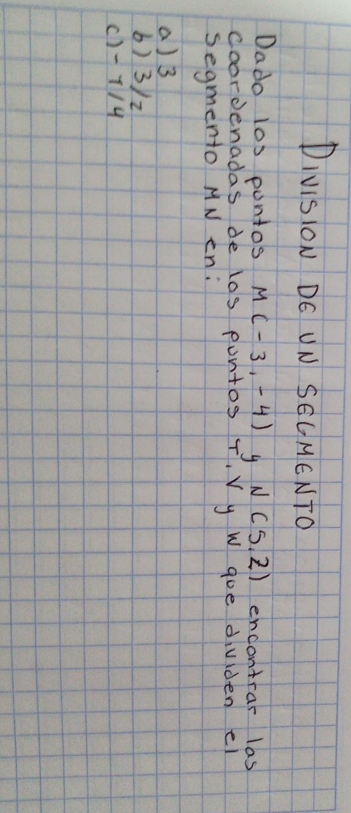 DIVISION DE UN SEGMENTO
Dado los puntos M(-3,-4) y N(5,2) encontrar las
coordenadas de los puntos T, V y W que dividen el
segmento MN en:
a) 3
b) 3/2
c) -1/4